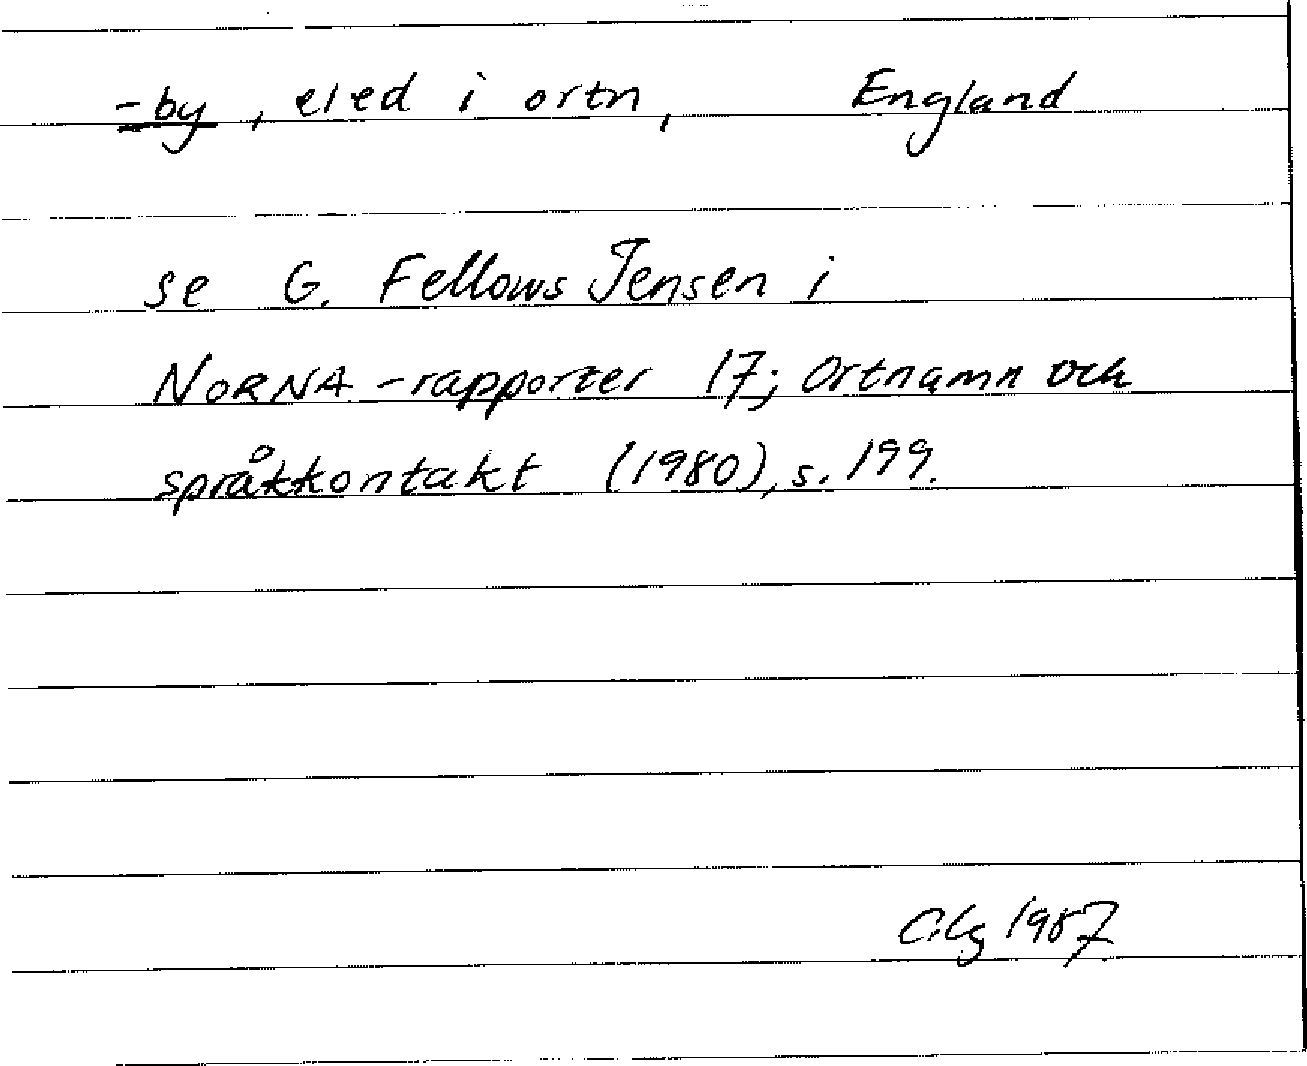 -by, eled i ortn, England
se G. Fellows Jensen i
NORNA-rapporter 17; Ortnamn och
språkkontakt (1980), s. 199.
1987